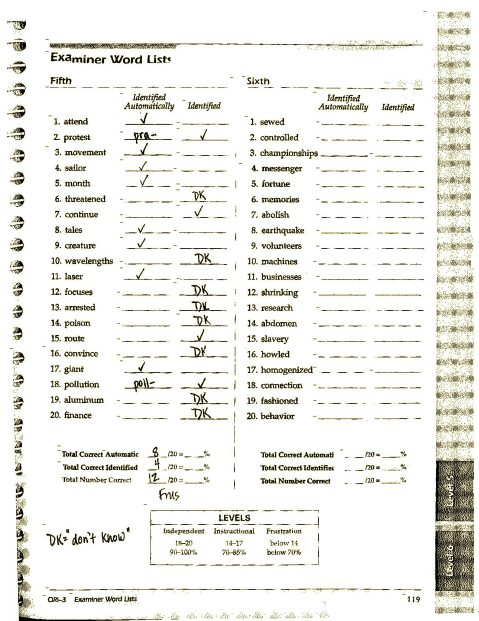 Examiner Word Lists
Fifth
Identified Automatically Identified
1. attend ✓
2. protest pra- ✓
3. movement ✓
4. sailor ✓
5. month ✓
6. threatened DK
7. continue ✓
8. tales ✓
9. creature ✓
10. wavelengths DK
11. laser ✓
12. focuses DK
13. arrested DK
14. poison DK
15. route ✓
16. convince DK
17. giant ✓
18. pollution poll- ✓
19. aluminum DK
20. finance DK
Total Correct Automatic 8 /20 = %
Total Correct Identified 4 /20 = %
Total Number Correct 12 /20 = %
Frus
Sixth
Identified Automatically Identified
1. sewed
2. controlled
3. championships
4. messenger
5. fortune
6. memories
7. abolish
8. earthquake
9. volunteers
10. machines
11. businesses
12. shrinking
13. research
14. abdomen
15. slavery
16. howled
17. homogenized
18. connection
19. fashioned
20. behavior
Total Correct Automati /20 = %
Total Correct Identified /20 = %
Total Number Correct /20 = %
DK="don't know"
LEVELS
Independent Instructional Frustration
18–20 14–17 below 14
90–100% 70–85% below 70%
QRI–3 Examiner Word Lists 119
Level 5
Level 6